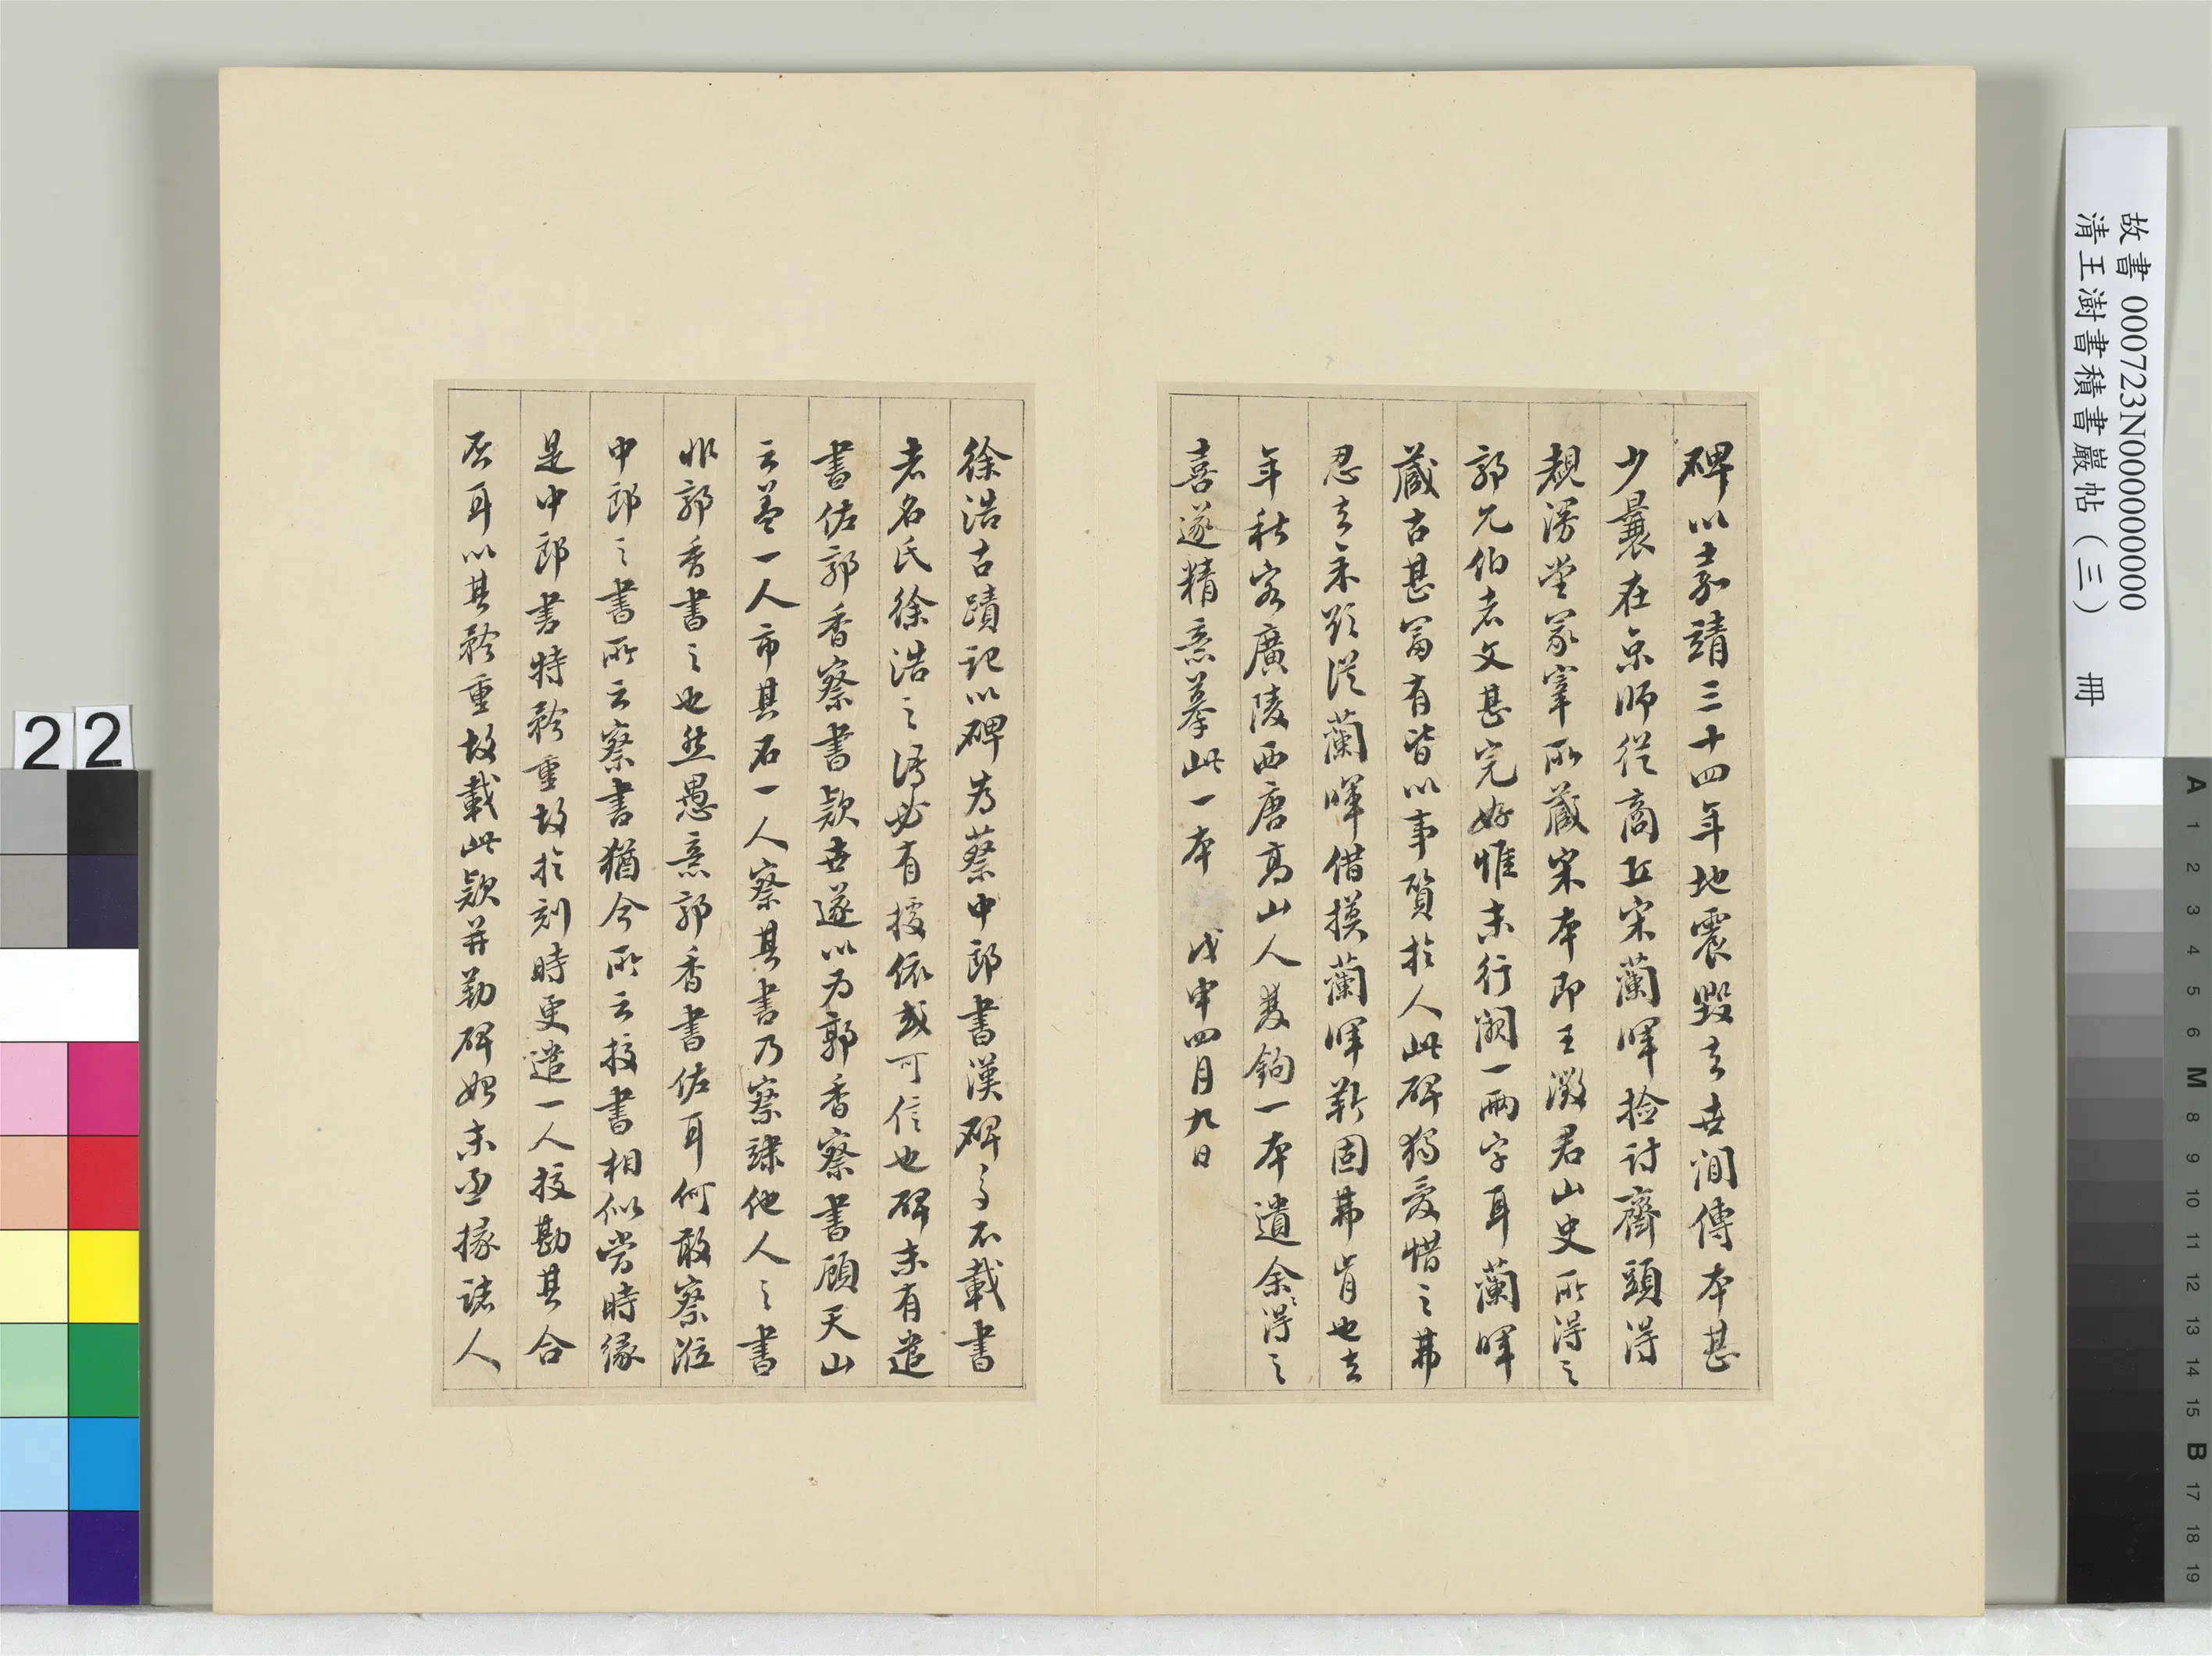 碑以嘉靖三十四年地震毀去世間傳本甚
少曩在京師從商丘宋蘭暉檢討齋頭得
觀漫堂冢宰所藏宋本即王徵君山史所得之
郭允伯者文甚完好惟末行闕一兩字耳蘭暉
藏古甚富有皆以事質於人此碑獨愛惜之弗
忍去余欲從蘭暉借摸蘭暉靳固弗肯也去
年秋客廣陵西唐高山人雙鉤一本遺余余得之
喜遂精意摹此一本 戊申四月九日
徐浩古蹟記以碑為蔡中郎書漢碑多不載書
者名氏徐浩之語必有據依或可信也碑末有遣
書佐郭香察書款世遂以為郭香察書顧天山
云蓋一人市其石一人察其書乃察隸他人之書
非郭香書之也然愚意郭香書佐耳何敢察涖
中郎之書所云察書猶今所云挍書相似當時緣
是中郎書特矜重故於刻時更遣一人挍勘其合
否耳以其矜重故載此款并勒碑如末丞掾諸人
故書 000723N000000000
清王澍書積書巖帖（三） 冊
22
A 1 2 3 4 5 6 M 8 9 10 11 12 13 14 15 B 17 18 19